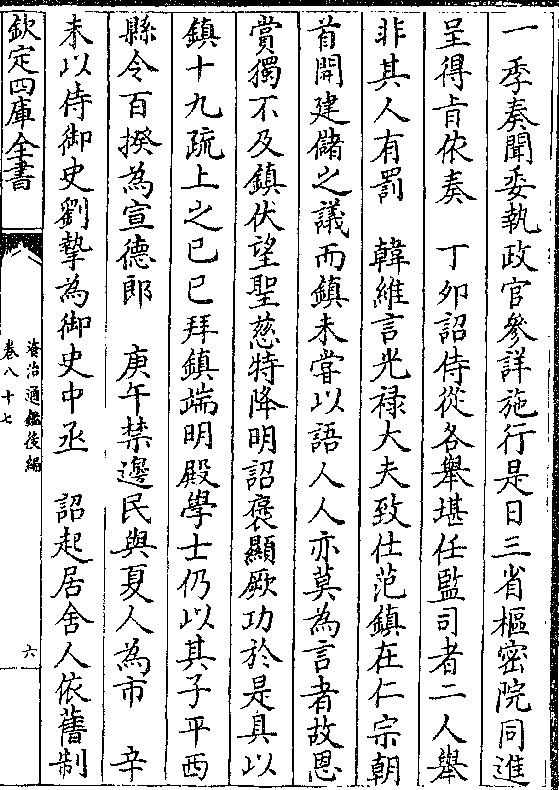 一季奏聞委執政官參詳施行是日三省樞密院同進
呈得旨依奏　丁卯詔侍從各舉堪任監司者二人舉
非其人有罰　韓維言光禄大夫致仕范鎮在仁宗朝
首開建儲之議而鎮未嘗以語人人亦莫為言者故恩
賞獨不及鎮伏望聖慈特降明詔襃顯厥功於是具以
鎮十九疏上之己巳拜鎮端明殿學士仍以其子平西
縣令百揆為宣德郎　庚午禁邊民與夏人為市　辛
未以侍御史劉摯為御史中丞　詔起居舍人依舊制
欽定四庫全書
資治通鑑後編
卷八十七
六